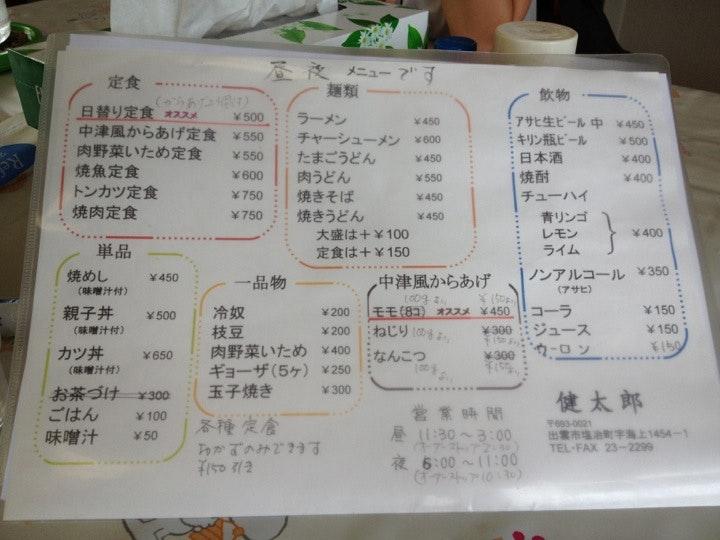 昼夜 メニューです
定食
日替り定食 オススメ ¥500
中津風からあげ定食 ¥550
肉野菜いため定食 ¥550
焼魚定食 ¥600
トンカツ定食 ¥750
焼肉定食 ¥750
麺類
ラーメン ¥450
チャーシューメン ¥600
たまごうどん ¥450
肉うどん ¥550
焼きそば ¥450
焼きうどん ¥450
大盛は+¥100
定食は+¥150
飲物
アサヒ生ビール 中 ¥450
キリン瓶ビール ¥500
日本酒 ¥400
焼酎 ¥400
チューハイ
青リンゴ
レモン ¥400
ライム
ノンアルコール ¥350
(アサヒ)
コーラ ¥150
ジュース ¥150
ウーロン ¥150
単品
焼めし ¥450
(味噌汁付)
親子丼 ¥500
(味噌汁付)
カツ丼 ¥650
(味噌汁付)
お茶づけ ¥300
ごはん ¥100
味噌汁 ¥50
一品物
冷奴 ¥200
枝豆 ¥200
肉野菜いため ¥400
ギョーザ(5ヶ) ¥250
玉子焼き ¥300
中津風からあげ
100gより ¥150より
モモ(8コ) オススメ ¥450
ねじり 100gより ¥300
¥150より
なんこつ ¥300
100gより ¥150より
各種定食
おかずのみできます
¥150引き
営業時間
昼 11:30~3:00
(オーダーストップ2:30)
夜 6:00~11:00
(オーダーストップ10:30)
健太郎
〒693-0021
出雲市塩冶町字海上1454-1
TEL・FAX 23-2299